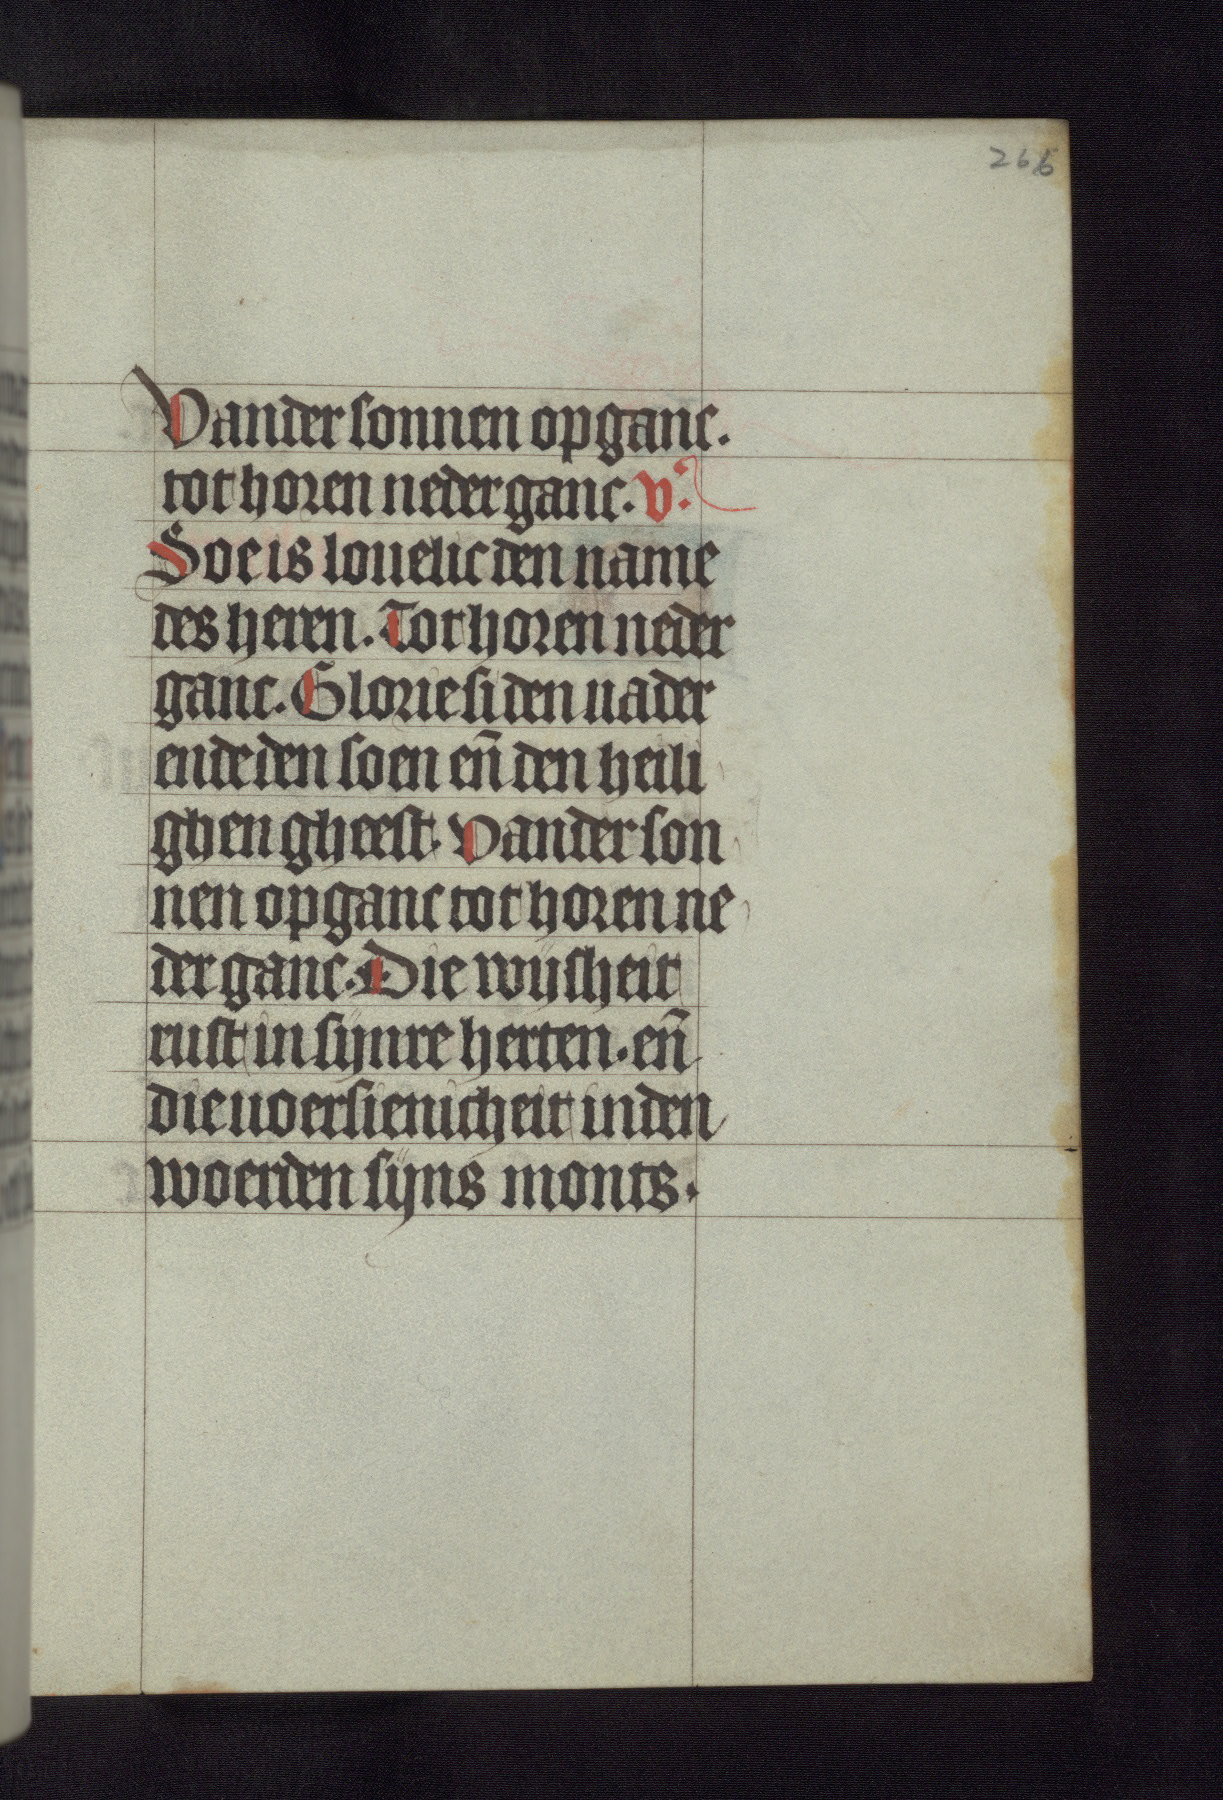 266
Vander sonnen opganc.
tot horen nederganc. v.
Soe is louelic den name
des heren. Tot horen neder
ganc. Glorie si den uader
ende den soen en̄ den heili
ghen gheest. Vander son
nen opganc tot horen ne
der ganc. Die wijsheit
rust in sijnre herten. en̄
die uoersienicheit in den
woerden sijns monts.